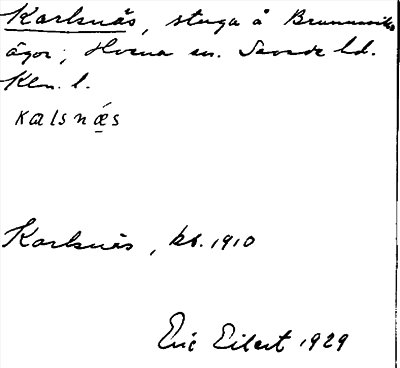 Karlsnäs, stuga å Brunnsviks
ägor; Hvena sn. Sevede hd.
Klm. l.
kalsnæ̀s
Karlsnäs, kb. 1910
Eric Eilert 1929